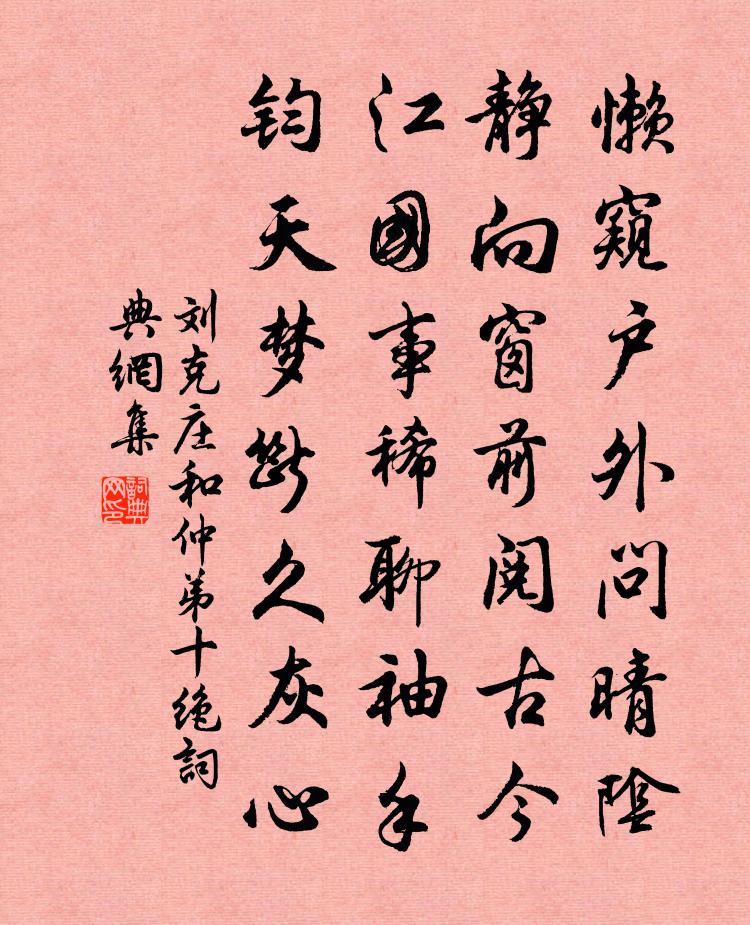 懒窥户外问晴陰
静向窗前阅古今
江國事稀聊袖手
钧天梦断久灰心
刘克庄和仲弟十绝詞
典網集
詞典
网印